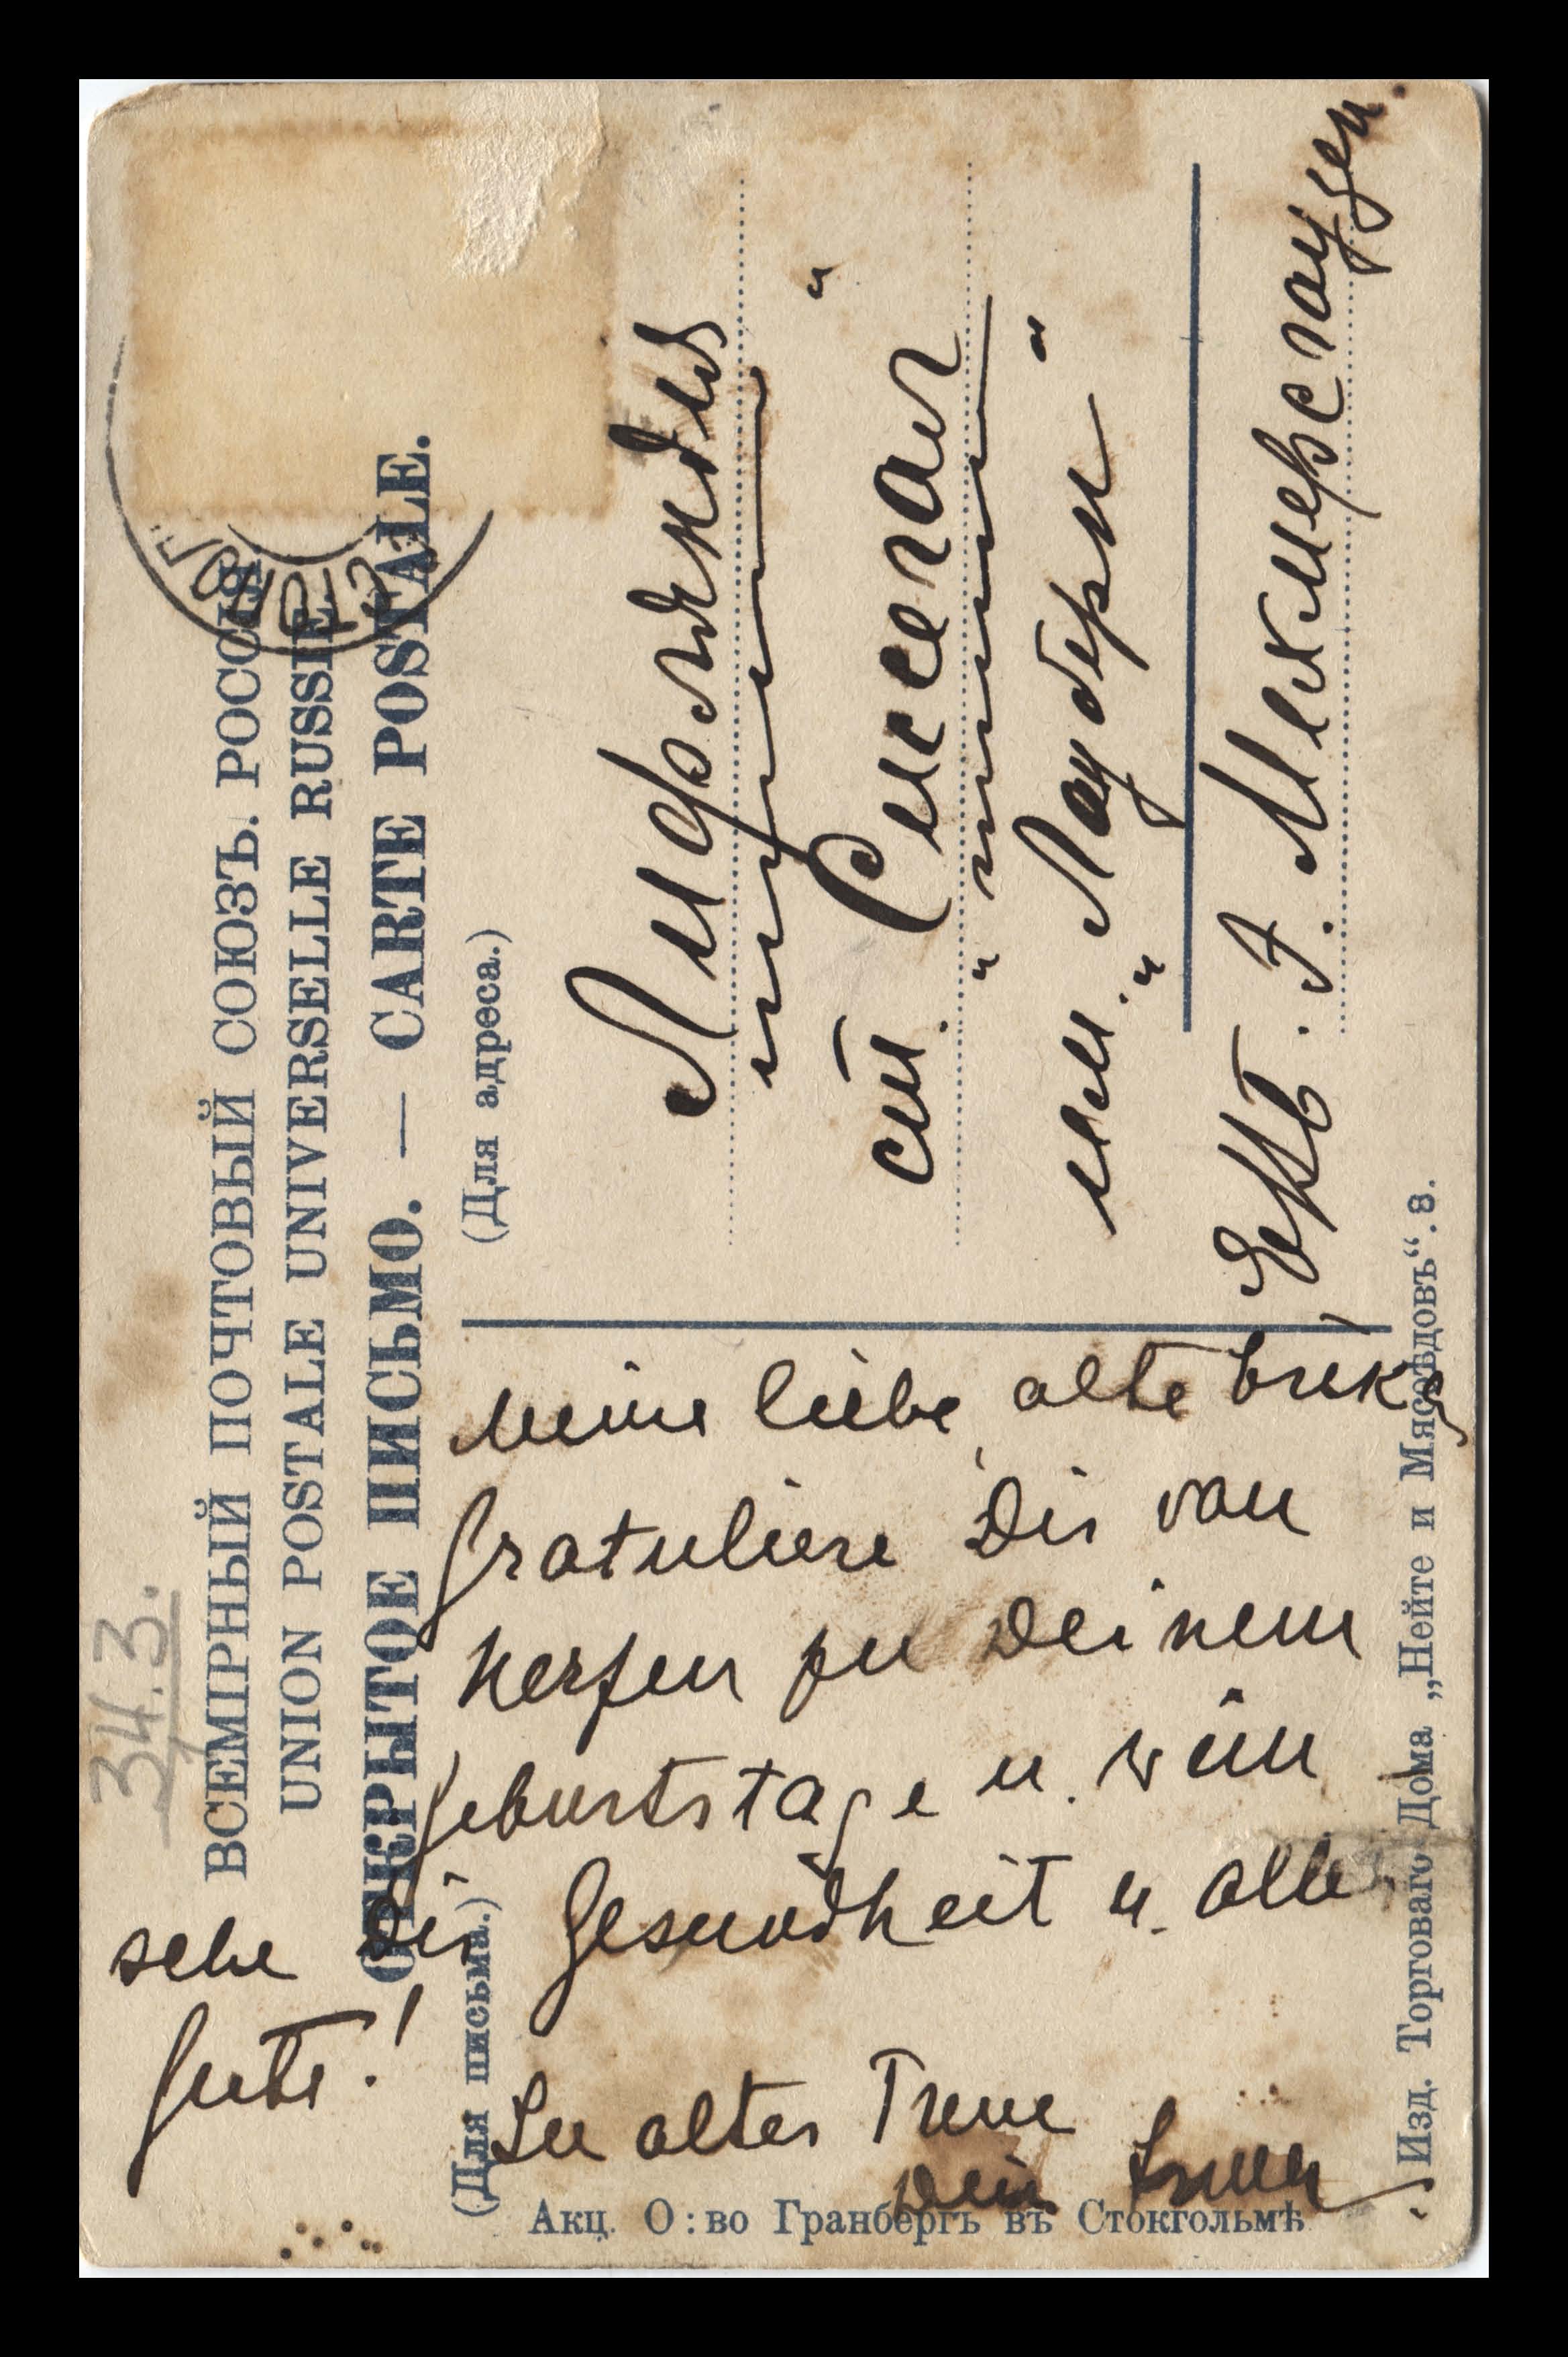 34.3.
ВСЕМІРНЫЙ ПОЧТОВЫЙ СОЮЗЪ. РОССІЯ
UNION POSTALE UNIVERSELLE RUSSIE.
ОТКРЫТОЕ ПИСЬМО. — CARTE POSTALE.
(Для адреса.)
Лифляндія
ст. Сисегалъ
им. „Лаубернъ“
Г. Мекмерсгаузенъ.
(Для письма.)
Meine liebe, alte
Gratuliere Dir von
Herzen zu Deinem
Geburtstage u. wün
sche Dir Gesundheit u. alles
Gute!
In alter Treue
Dein
Акц. О:во Гранбергъ въ Стокгольмѣ
Изд. Торговаго Дома „Нейте и Мясоѣдовъ“. 8.